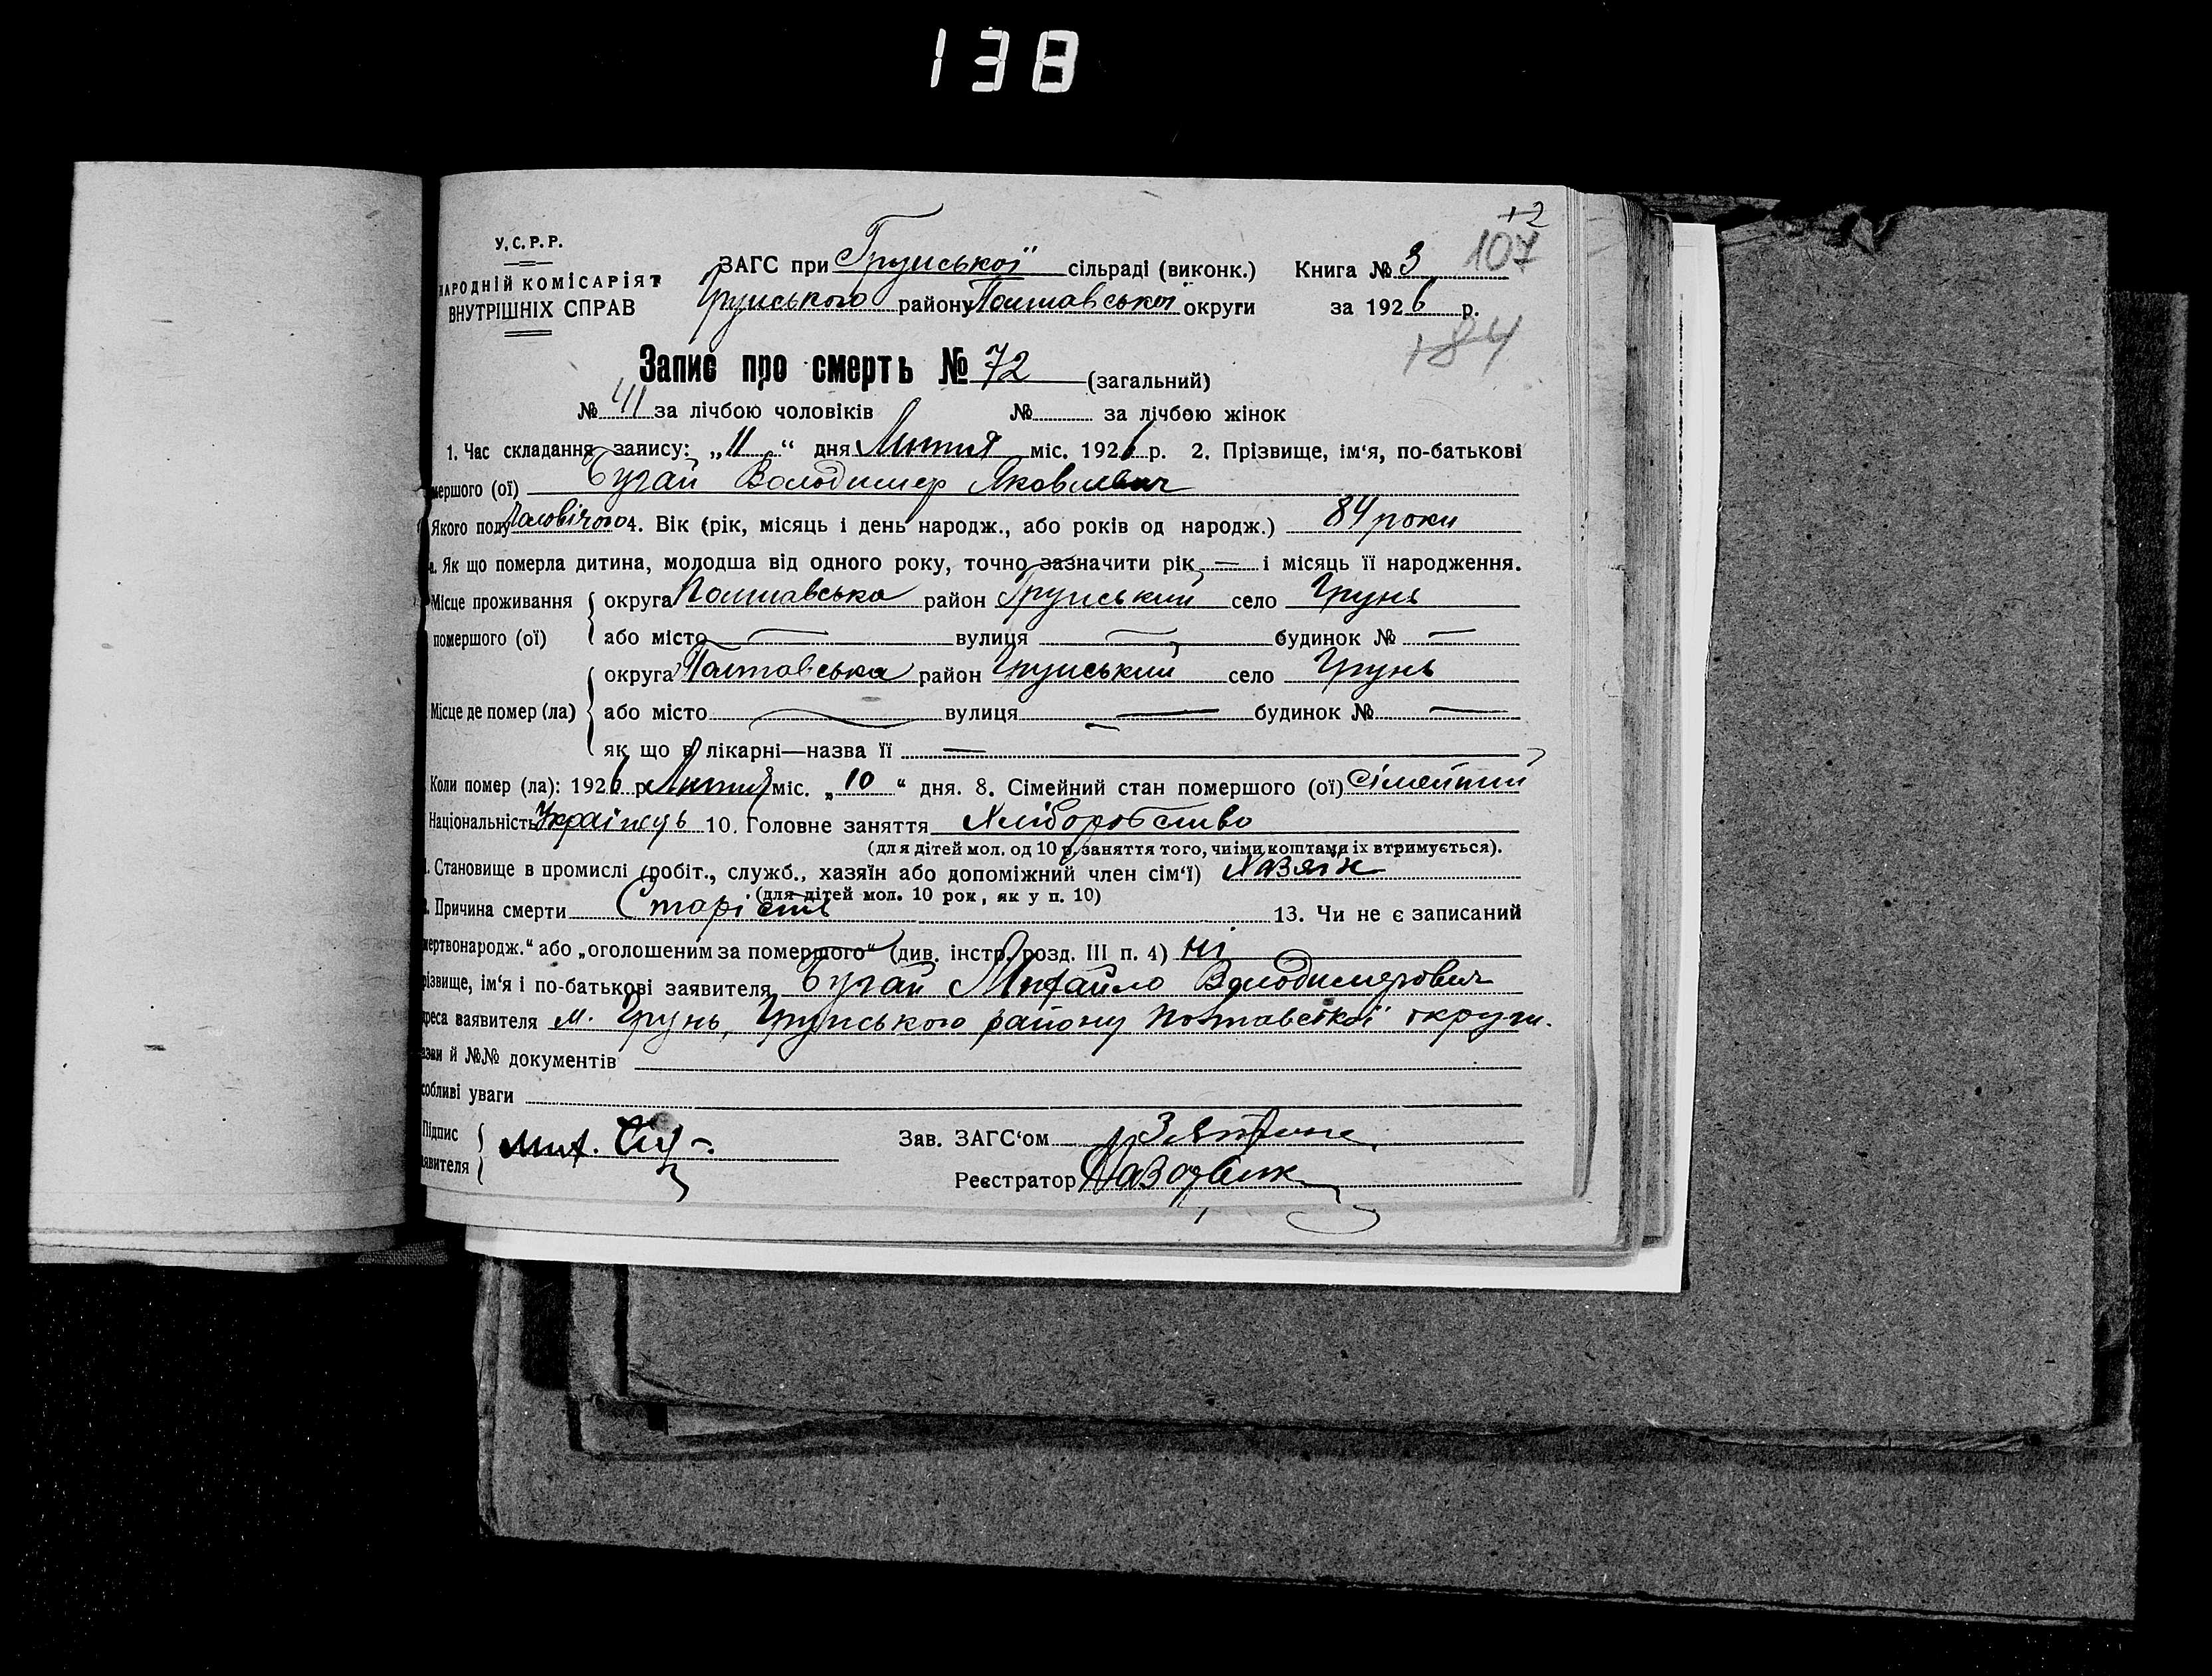 138
У.С.Р.Р.
НАРОДНІЙ КОМІСАРІЯТ
ВНУТРІШНІХ СПРАВ
ЗАГС при Грунської сільраді (виконк.) Книга № 3
Грунського району Полтавської округи за 1926 р.
+2
107
+84
Запис про смерть № 72 (загальний)
№ 41 за лічбою чоловіків № за лічбою жінок
1. Час складання запису: „11“ дня Липня міс. 1926 р. 2. Прізвище, ім'я, по-батькові
мершого (ої) Бугай Володимер Яковлевич
Якого полу Чоловічого 4. Вік (рік, місяць і день народж., або років од народж.) 84 роки
а. Як що померла дитина, молодша від одного року, точно зазначити рік — і місяць її народження.
Місце проживання округа Полтавська район Грунський село Грунь
помершого (ої) або місто — вулиця — будинок № —
округа Полтавська район Грунський село Грунь
Місце де помер (ла) або місто — вулиця — будинок № —
як що в лікарні—назва її —
Коли помер (ла): 1926 р. Липня міс. „10“ дня. 8. Сімейний стан помершого (ої) Сімейний
Національність Українець 10. Головне заняття Хліборобство
(для дітей мол. од 10 р. заняття того, чиїми коштами їх втримується).
1. Становище в промислі (робіт., служб., хазяїн або допоміжний член сім'ї) Хазяїн
(для дітей мол. 10 рок, як у п. 10)
Причина смерти Старість 13. Чи не є записаний
мертвонародж.“ або „оголошеним за помершого“ (див. інстр. розд. III п. 4) Ні
різвище, ім'я і по-батькові заявителя Бугай Михайло Володимерович
дреса заявителя м. Грунь, Грунського району Полтавської округи.
ази й №№ документів
собливі уваги
Підпис Мих. Буг
аявителя
Зав. ЗАГС'ом
Реєстратор